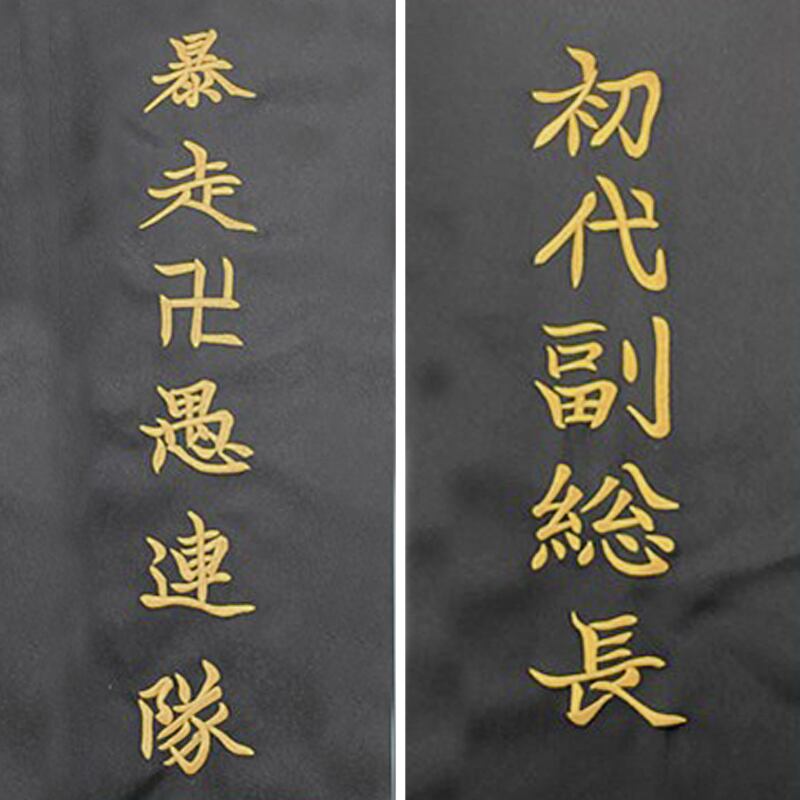 暴走卍愚連隊
初代副総長